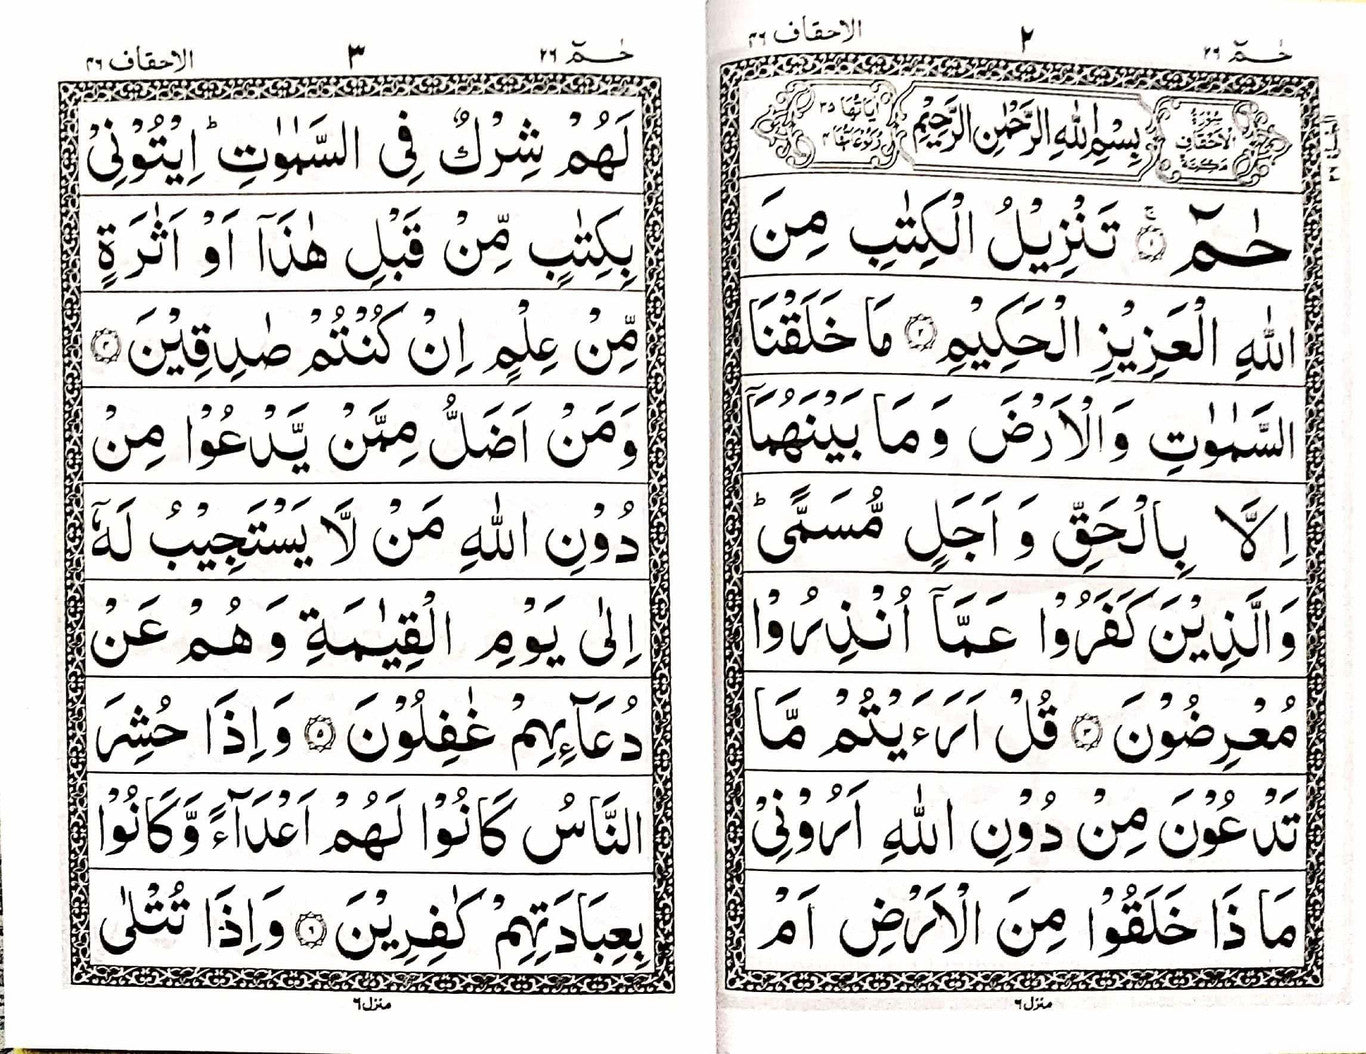 الاحقاف ۴۶
۲
حٰمٓ ۲۶
سُوْرَةُ الْاَحْقَافِ مَكِّيَّةٌ
بِسْمِ اللهِ الرَّحْمٰنِ الرَّحِيْمِ
اٰيَاتُهَا ۳۵ رُكُوْعَاتُهَا ۴
حٰمٓ ۚ﴿۱﴾ تَنْزِيْلُ الْكِتٰبِ مِنَ
اللهِ الْعَزِيْزِ الْحَكِيْمِ ﴿۲﴾ مَا خَلَقْنَا
السَّمٰوٰتِ وَالْاَرْضَ وَمَا بَيْنَهُمَاۤ
اِلَّا بِالْحَقِّ وَاَجَلٍ مُّسَمًّىؕ
وَالَّذِيْنَ كَفَرُوْا عَمَّاۤ اُنْذِرُوْا
مُعْرِضُوْنَ ﴿۳﴾ قُلْ اَرَءَيْتُمْ مَّا
تَدْعُوْنَ مِنْ دُوْنِ اللهِ اَرُوْنِيْ
مَاذَا خَلَقُوْا مِنَ الْاَرْضِ اَمْ
منزل ۶
الاحقاف ۴۶
۳
حٰمٓ ۲۶
لَهُمْ شِرْكٌ فِي السَّمٰوٰتِؕ اِيْتُوْنِيْ
بِكِتٰبٍ مِّنْ قَبْلِ هٰذَاۤ اَوْ اَثٰرَةٍ
مِّنْ عِلْمٍ اِنْ كُنْتُمْ صٰدِقِيْنَ ﴿۴﴾
وَمَنْ اَضَلُّ مِمَّنْ يَّدْعُوْا مِنْ
دُوْنِ اللهِ مَنْ لَّا يَسْتَجِيْبُ لَهٗۤ
اِلٰى يَوْمِ الْقِيٰمَةِ وَهُمْ عَنْ
دُعَآءِهِمْ غٰفِلُوْنَ ﴿۵﴾ وَاِذَا حُشِرَ
النَّاسُ كَانُوْا لَهُمْ اَعْدَآءً وَّكَانُوْا
بِعِبَادَتِهِمْ كٰفِرِيْنَ ﴿۶﴾ وَاِذَا تُتْلٰى
منزل ۶